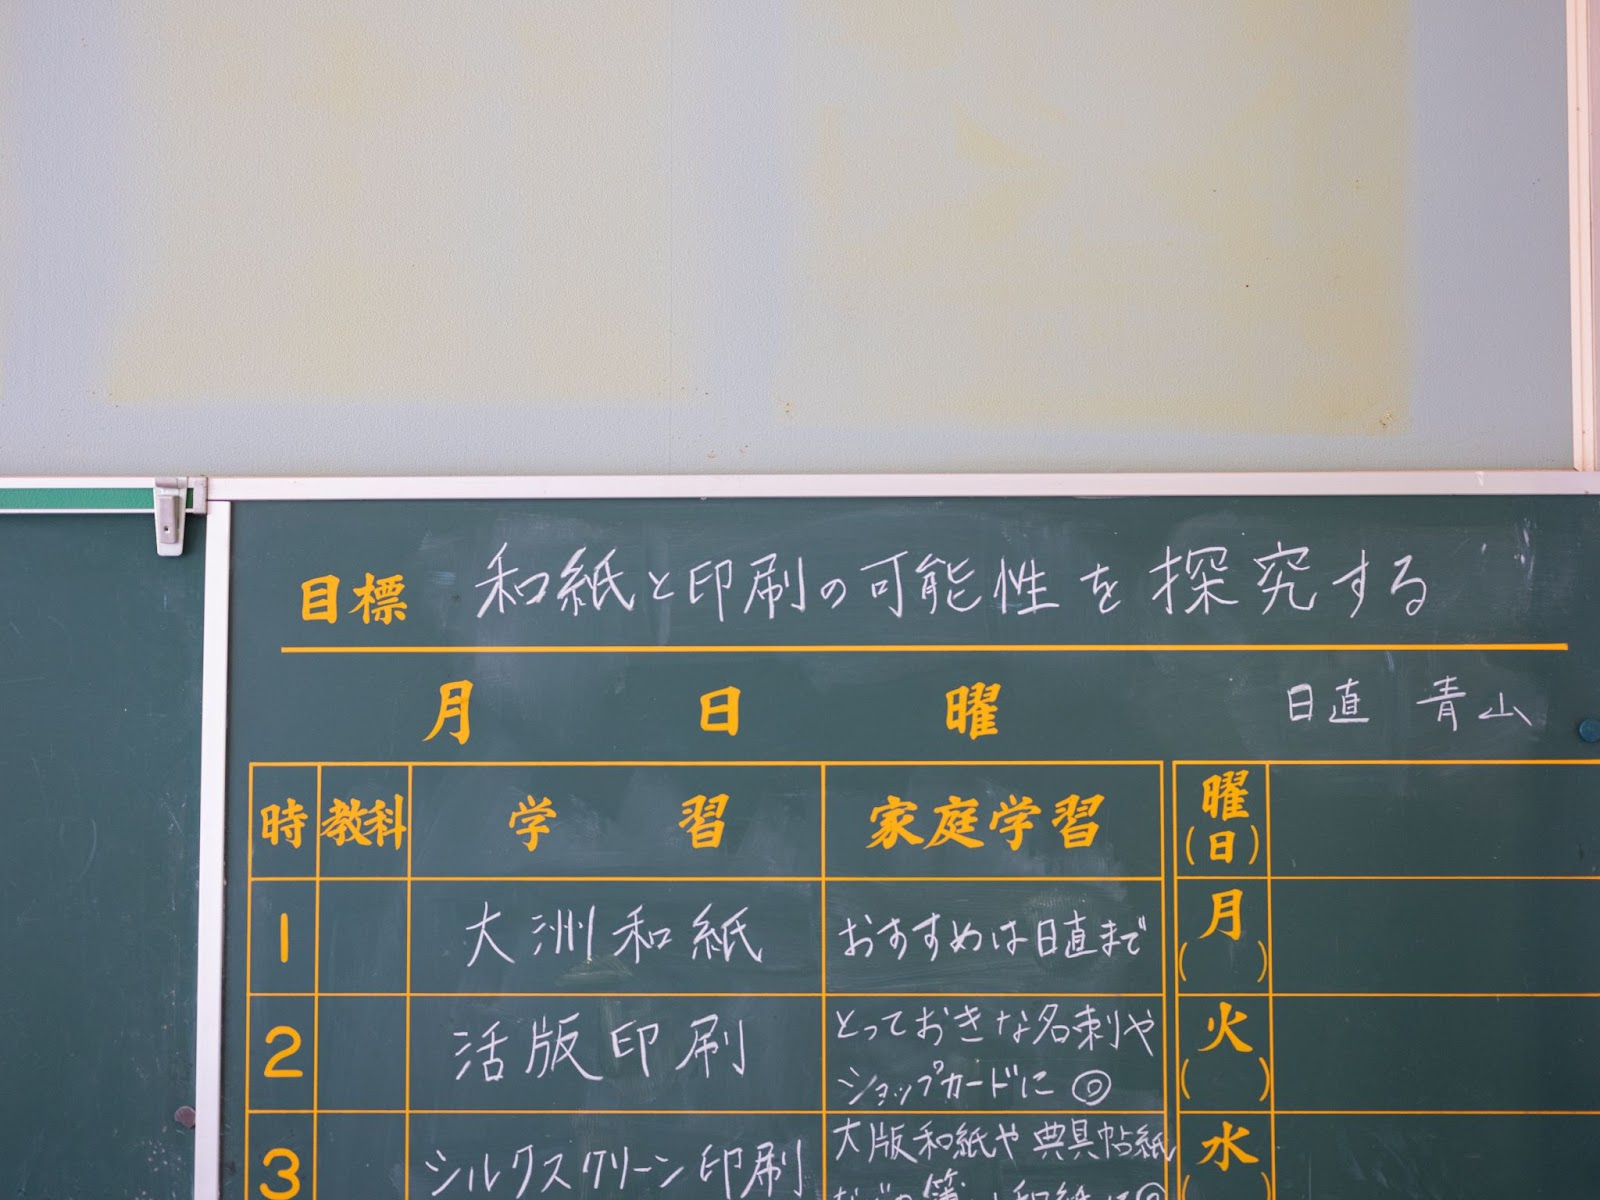 目標 和紙と印刷の可能性を探究する
月 日 曜
日直 青山
時 教科 学習 家庭学習
1 大洲和紙 おすすめは日直まで
2 活版印刷 とっておきな名刺や
ショップカードに◎
3 シルクスクリーン印刷 大版和紙や典具帖紙
などの薄い和紙に◎
曜(日)
月( )
火( )
水(